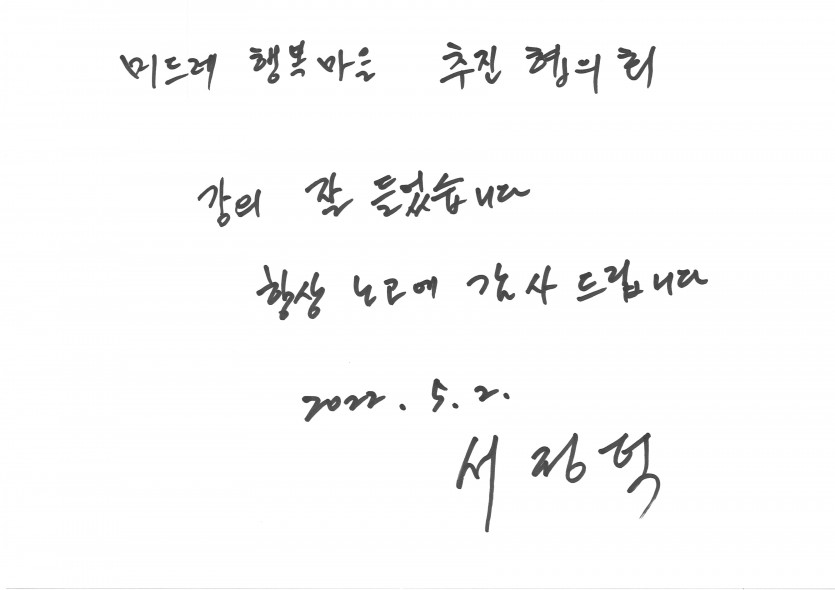 미드레 행복마을 추진 협의회
강의 잘 들었습니다
항상 노고에 감사 드립니다
2022. 5. 2.
서정덕